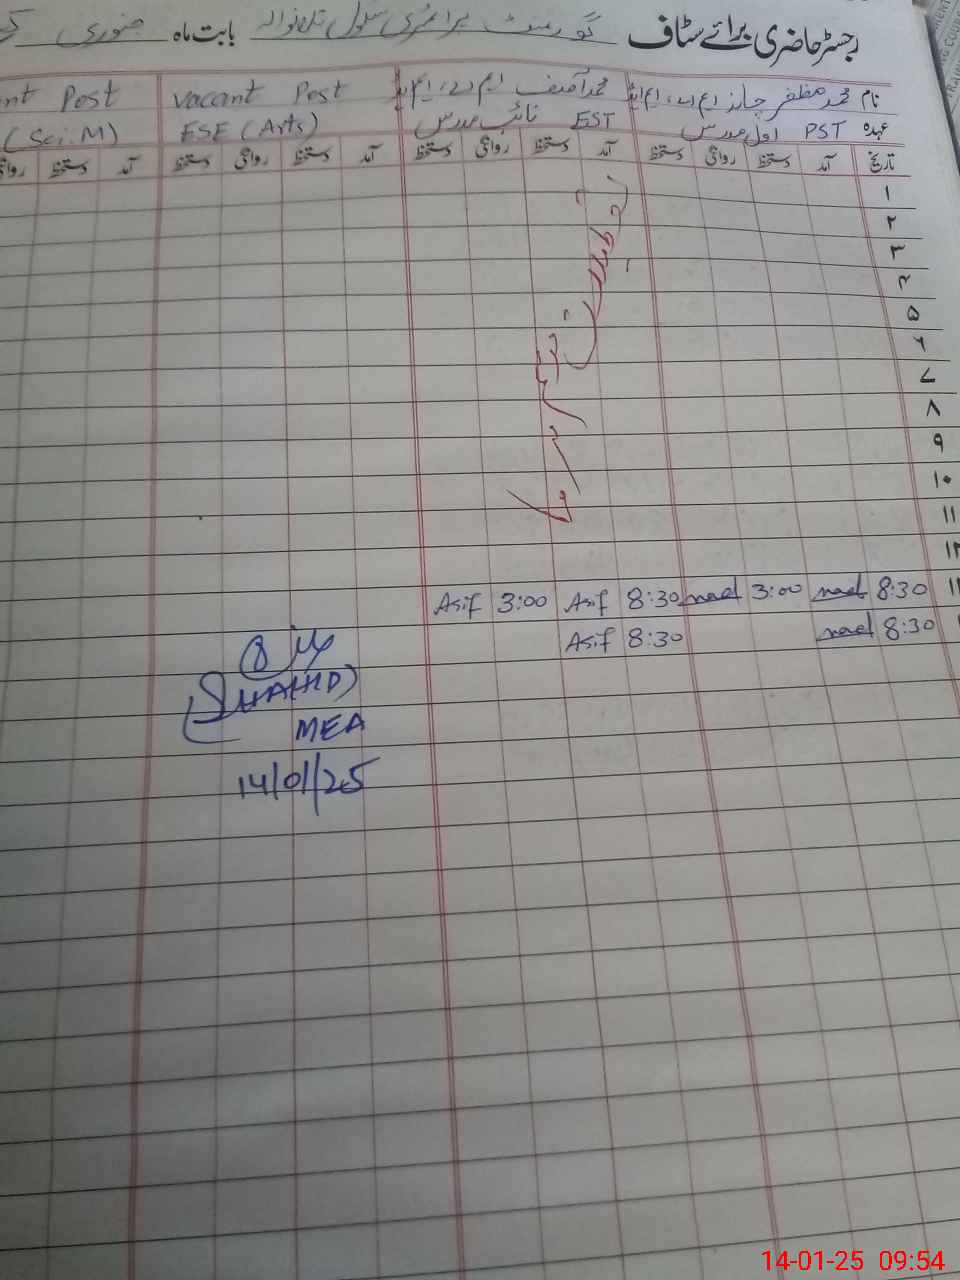 رجسٹر حاضری برائے سٹاف گورنمنٹ پرائمری سکول بابت ماہ جنوری
نام محمد مظفر ایم اے، ایم ایڈ محمد آصف ایم اے، ایم ایڈ Vacant Post nt Post
عہدہ PST اول مدرس EST نائب مدرس ESE (Arts) (Sci.M)
تاریخ آمد دستخط روانگی دستخط آمد دستخط روانگی دستخط آمد دستخط روانگی دستخط آمد دستخط
۱
۲
۳
۴
۵
۶
۷
۸
۹
۱۰
۱۱
۱۲
8:30 3:00 8:30 Asif 3:00 Asif
8:30 8:30 Asif
موسم سرما کی تعطیلات
(SHAHID)
MEA
14/01/25
14-01-25 09:54